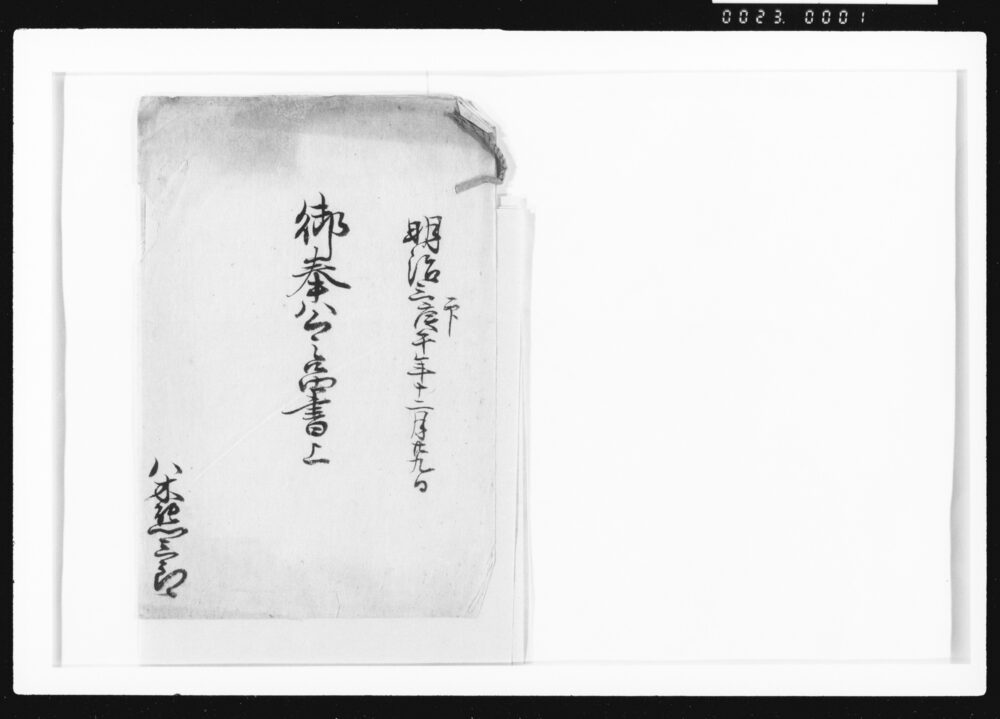 0023. 0001
明治三庚午年十二月廿九日
御奉公之品書上
八木三郎